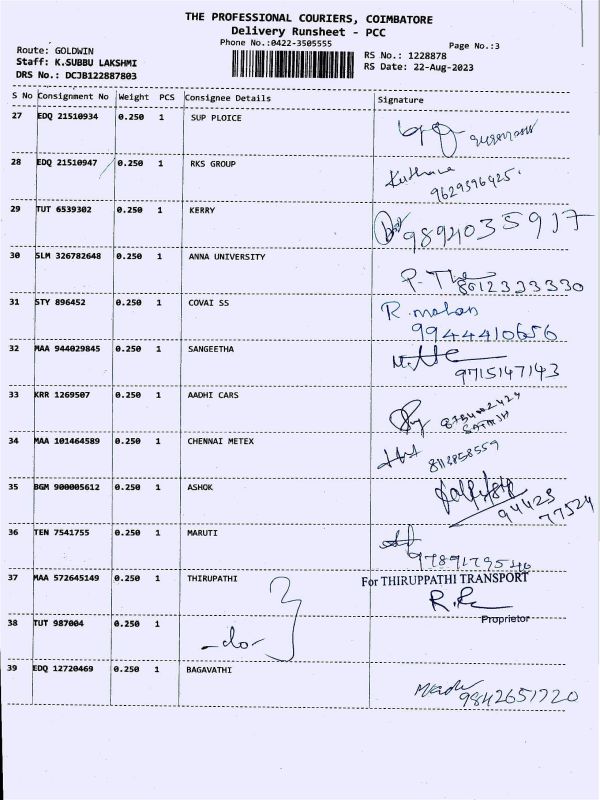 THE PROFESSIONAL COURIERS, COIMBATORE
Delivery Runsheet - PCC
Phone No.:0422-3505555
Page No.:3
Route: GOLDWIN
Staff: K.SUBBU LAKSHMI
DRS No.: DCJB122887803
RS No.: 1228878
RS Date: 22-Aug-2023
S No Consignment No Weight PCS Consignee Details Signature
27 EDQ 21510934 0.250 1 SUP PLOICE
28 EDQ 21510947 0.250 1 RKS GROUP
9629596425.
29 TUT 6539302 0.250 1 KERRY
9894035917
30 SLM 326782648 0.250 1 ANNA UNIVERSITY
8012333330
31 STY 896452 0.250 1 COVAI SS R. mohan
9944410656
32 MAA 944029845 0.250 1 SANGEETHA
9715147143
33 KRR 1269507 0.250 1 AADHI CARS
SATHISH
34 MAA 101464589 0.250 1 CHENNAI METEX
8112858559
35 BGM 900005612 0.250 1 ASHOK
94423
77524
36 TEN 7541755 0.250 1 MARUTI
9789179546
37 MAA 572645149 0.250 1 THIRUPATHI For THIRUPPATHI TRANSPORT
38 TUT 987004 0.250 1 Proprietor
-do-
39 EDQ 12720469 0.250 1 BAGAVATHI
9842651720